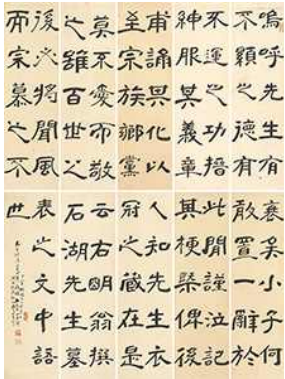 嗚呼先生有
不顯之德有
不運之功搢
紳服其義章
甫誦其化以
至宗族鄉黨
莫不愛而敬
之雖百世之
後必將聞風
而宗慕之不
衰矣小子何
敢置一辭於
此間謹泣記
其梗槩俾後
人知先生衣
冠之藏在是
云右明翁撰
石湖先生墓
表之文中語
世